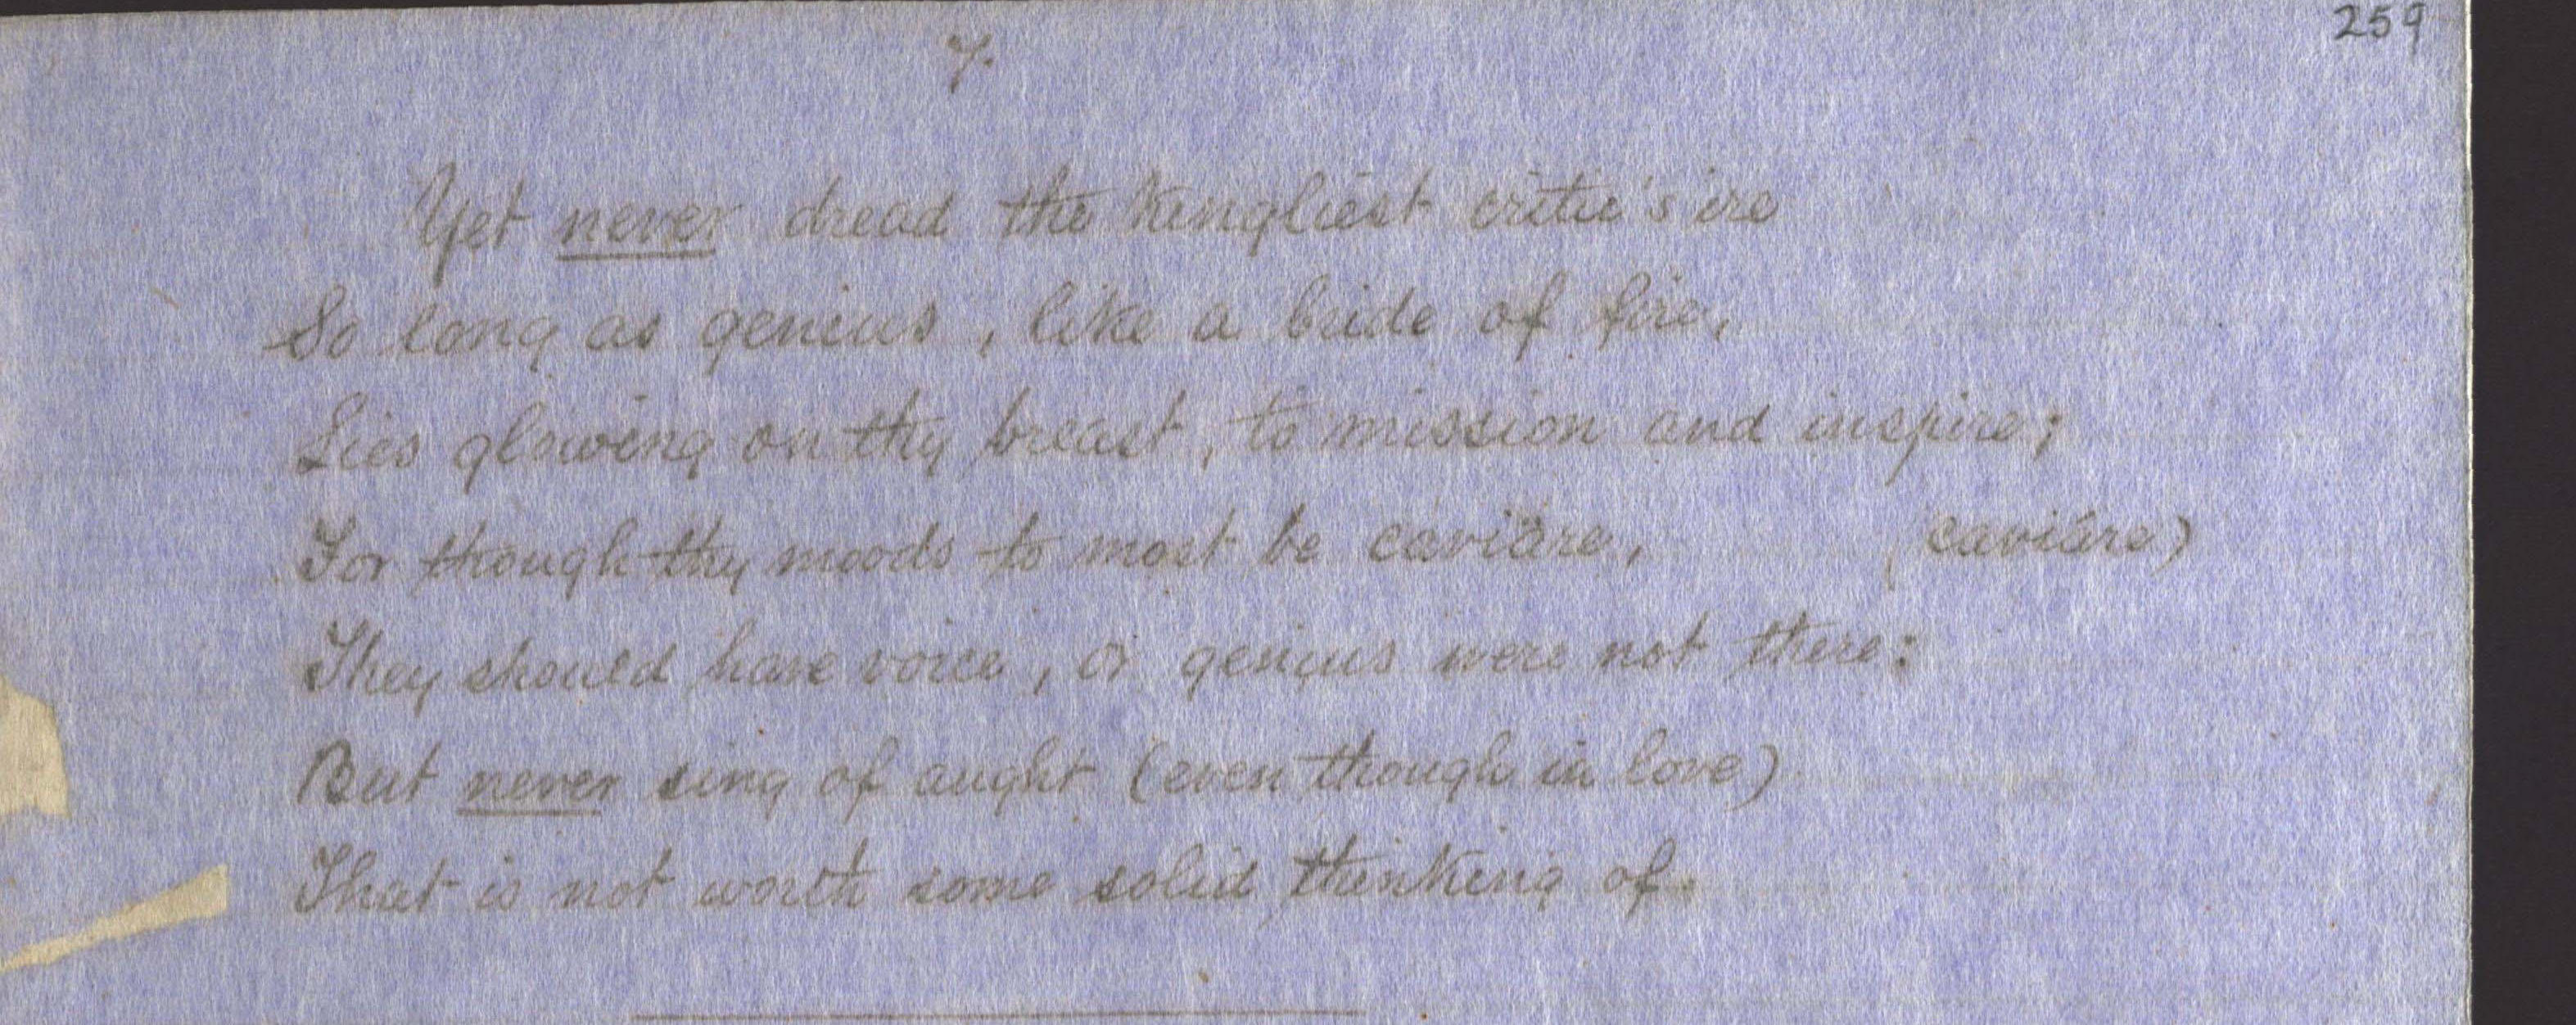 259
7.
Yet never dread the kingliest critic's ire
So long as genius, like a bride of fire,
Lies glowing on thy breast, to mission and inspire;
For though thy moods to most be caviàre, (caviàre)
They should have voice, or genius were not there:
But never sing of aught (even though in love)
That is not worth some solid thinking of.